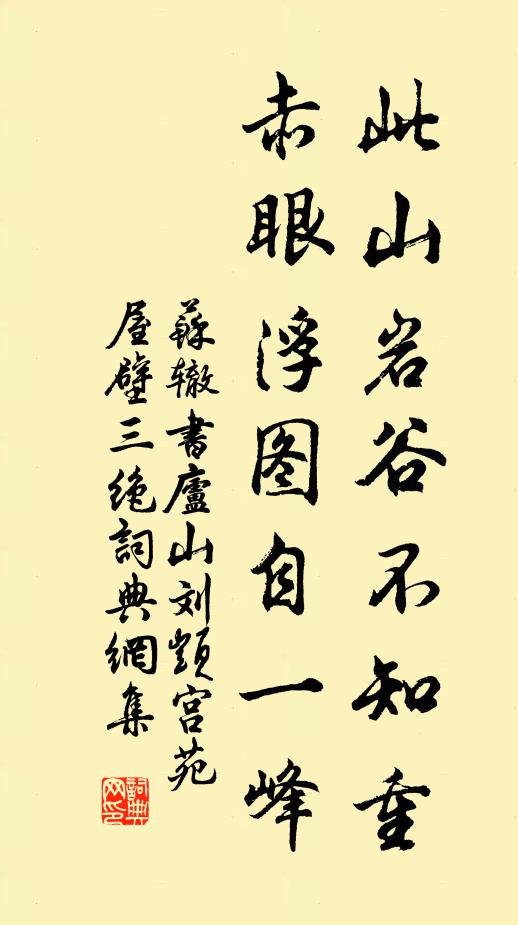 此山岩谷不知重
赤眼浮图自一峰
蘇辙書廬山刘顗宫苑
屋壁三绝詞典網集
詞典网印